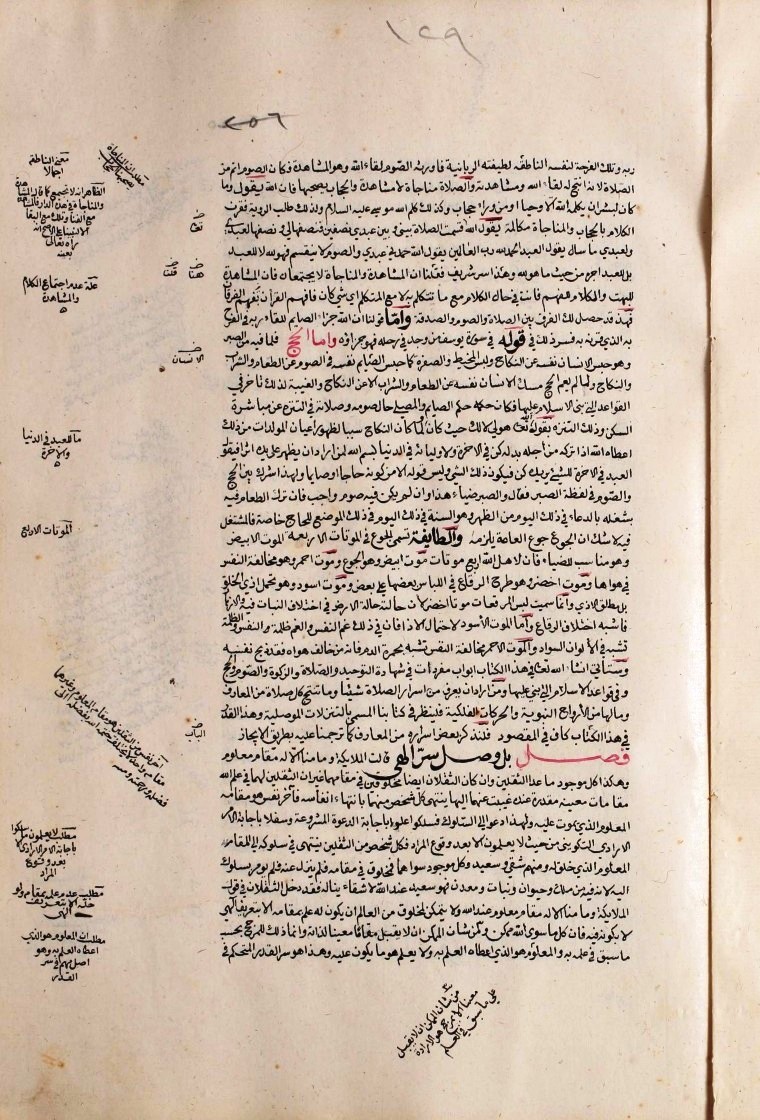 ١٤٩
٢٥٦
ربه وتلك الفرحة لنفسه الناطقة لطيفته الربانية فاورثه الصوم لقاء الله وهو المشاهدة فكان الصوم اتم من
الصلاة لانه انتج له لقاء الله ومشاهدته والصلاة مناجاة لا مشاهدة والحجاب يصحبها فان الله يقول وما
كان لبشر ان يكلمه الله الا وحيا او من وراء حجاب وكذلك كلم الله موسى عليه السلام ولذلك طلب الروية فقرن
الكلام بالحجاب والمناجاة مكالمة يقول الله قسمت الصلاة بيني وبين عبدي نصفين فنصفها لي ونصفها لعبدي
ولعبدي ما سال يقول العبد الحمد لله رب العالمين يقول الله حمدني عبدي والصوم لا ينقسم فهو لله لا للعبد
بل للعبد اجره من حيث ما هو لله وهذا سر شريف فقلنا ان المشاهدة والمناجاة لا يجتمعان فان المشاهدة
للبهت والكلام للفهم فانت في حال الكلام مع ما تتكلم به لا مع المتكلم اي شي كان فافهم القران تفهم الفرقان
فهذا قد حصل لك الفرق بين الصلاة والصوم والصدقة واما قولنا ان الله جزاء الصايم للقاء ربه في الفرح
به الذي قرنه به فسر ذلك في قوله في سورة يوسف من وجد في رحله فهو جزاؤه واما الحج فلما فيه من الصبر
وهو حبس الانسان نفسه عن النكاح ولبس المخيط والصفرة كما حبس الصايم نفسه في الصوم عن الطعام والشراب
والنكاح ولما لم يعم الحج مسك الانسان نفسه عن الطعام والشراب الا عن النكاح والغيبة لذلك تاخر في
القواعد التي بني الاسلام عليها فكان حكمه حكم الصايم والمصلي حال صومه وصلاته في التنزه عن مباشرة
السكن وذلك التنزه بقوله تعالى هو لي لا لك حيث كان لما كان النكاح سببا لظهور اعيان المولدات من ذلك
اعطاه الله اذا تركه من اجله بدله كن في الاخرة ولاوليائه في الدنيا بسم الله لمن اراد ان يظهر على يديه اثرا فيقول
العبد في الاخرة للشيء يريده كن فيكون ذلك الشيء وليس قوله الا من كونه حاجا او صايما ولهذا اشترك بين الحج
والصوم في لفظة الصبر فقال والصبر ضياء هذا وان لم يكن فيه صوم واجب فان ترك الطعام فيه
يشغله بالدعاء في ذلك اليوم من الظهر وهو السنة في ذلك اليوم في ذلك الموضع للحاج خاصة فالمشتغل
فيه لا شك ان الجوع جوع العامة يلزمه والطايفة تسمي الجوع في الموتات الاربعة الموت الابيض
وهو مناسب للضياء فان لاهل الله اربع موتات موت ابيض وهو الجوع وموت احمر وهو مخالفة النفس
في هواها وموت اخضر وهو طرح الرقاع في اللباس بعضها على بعض وموت اسود وهو تحمل اذى الخلق
بل مطلق الاذى وانما سميت لبس المرقعات موتا اخضر لان حالته حالة الارض في اختلاف النبات فيه والازهار
فاشبه اختلاف الرقاع واما الموت الاسود لاحتمال الاذى فان في ذلك غم النفس والغم ظلمة والنفس والظلمة
تشبه في الالوان السواد والموت الاحمر مخالفة النفس تشبه بحمرة الدم فانه من خالف هواه فقد ذبح نفسه
وستاتي انشا الله تعالى في هذا الكتاب ابواب مفردات في شهادة التوحيد والصلاة والزكوة والصوم والحج
وهي قواعد الاسلام التي بني عليها ومن اراد ان يعرف من اسرار الصلاة شيئا وما تنتج كل صلاة من المعارف
وما لها من الارواح النبوية والحركات الفلكية فلينظر في كتابنا المسمى بالتنزلات الموصلية وهذا القدر
في هذا الكتاب كاف في المقصود فلنذكر بعض اسراره من المعارف كما ترجمنا عليه بطريق الايجاز
فصل بل وصل سر الهي قالت الملايكة وما منا الا له مقام معلوم
وهكذا كل موجود ما عدا الثقلين وان كان الثقلان ايضا مخلوقين في مقامهما غير ان الثقلين لهما في علم الله
مقامات معينة مقدرة عنده غيبت عنهما اليها ينتهي كل شخص منهما بانتهاء انفاسه فآخر نفس هو مقامه
المعلوم الذي يموت عليه ولهذا دعوا الى السلوك فسلكوا علوا باجابة الدعوة المشروعة وسفلا باجابة الامر
الارادي التكويني من حيث لا يعلمون الا بعد وقوع المراد فكل شخص من الثقلين ينتهي في سلوكه الى المقام
المعلوم الذي خلق له ومنهم شقي وسعيد وكل موجود سواهما فمخلوق في مقامه فلم ينزل عنه فلم يؤمر بسلوك
اليه لانه فيه من ملك وحيوان ونبات ومعدن فهو سعيد عند الله لا شقاء يناله فقد دخل الثقلان في قول
الملايكة وما منا الا له مقام معلوم عند الله ولا يتمكن لمخلوق من العالم ان يكون له علم بمقامه الا بتعريف الهي
لا بكونه فيه فان كل ما سوى الله ممكن ومن شان الممكن ان لا يقبل مقاما معينا لذاته وانما ذلك للمرجح بحسب
ما سبق في علمه به والمعلوم هو الذي اعطاه العلم به ولا يعلم هو ما يكون عليه وهذا هو سر القدر المتحكم في
معنى الناطقة
اجمالا
علة عدم اجتماع الكلام
والمشاهدة
الانسان
ما للعبد في الدنيا
والآخرة
الموتات الاربع
الباب
مطلب لا يعلمون ما سلكوا
باجابة الامر الارادي الا
بعد وقوع
المراد
مطلب عدم علم بمقامه لمخلوق
الا بتعريف
الهي
مطلب ان المعلوم هو الذي
اعطاه العلم به وهو
اصل مهم في سر
القدر
من شان الممكن ان لا يقبل
معينا الا بمرجح هو الارادة
على ما سبق في العلم